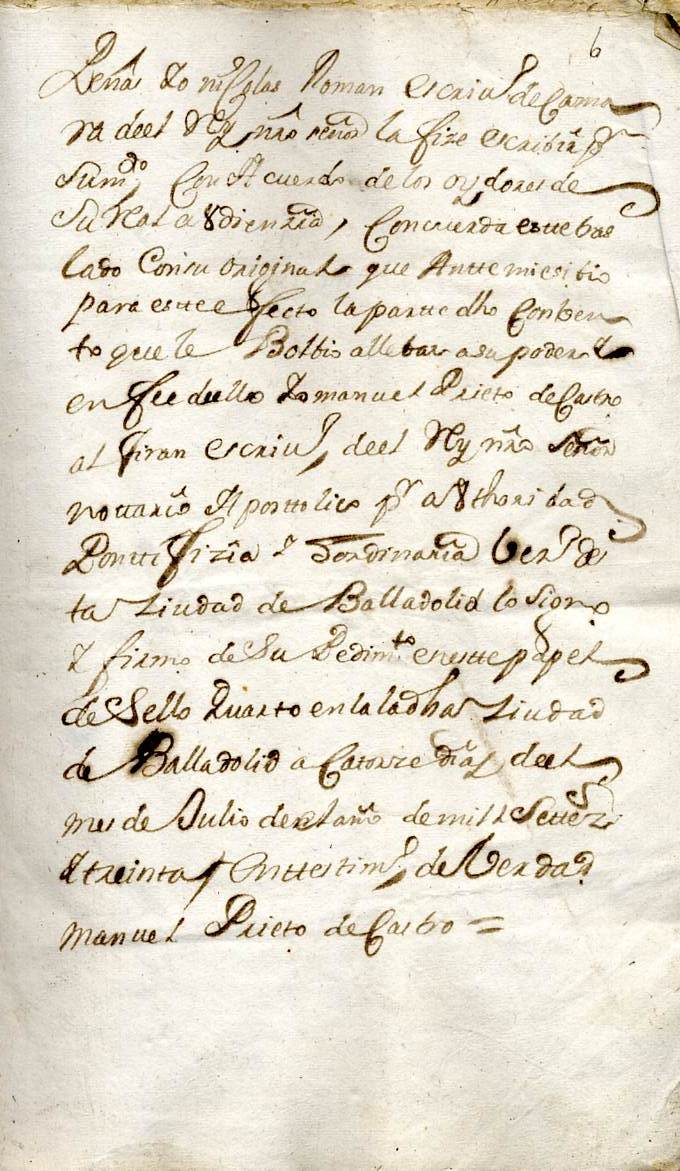 6
Peñas Yo nicolas Roman escriuº de Cama
ra deel Rey nrō señor la fize escribir pʳ
sumdo, Con Acuerdo de los oydores de
Su Real audienzia, Concuerda este tras
lado Consu original que Antte mi esibio
para estte efecto la partte dho Conben
to que le Bolbio allebar a su poder Y
en fee dello Yo manuel Prieto de Castro
al firan escriuº, deel Rey nrō señor
nottario Apostolico pʳ authoridad
Ponttifizia Y hordinaria Vezº des
ta Ziudad de Balladolid lo signo
Y firmo de Su Pedimto en estte papel
de Sello Quarto en la ladha Ziudad
de Balladolid a Catorze dias deel
mes de Julio del año de mill Settezs
Y treinta / Entterstimº de Verdad
manuel Prieto de Castro =